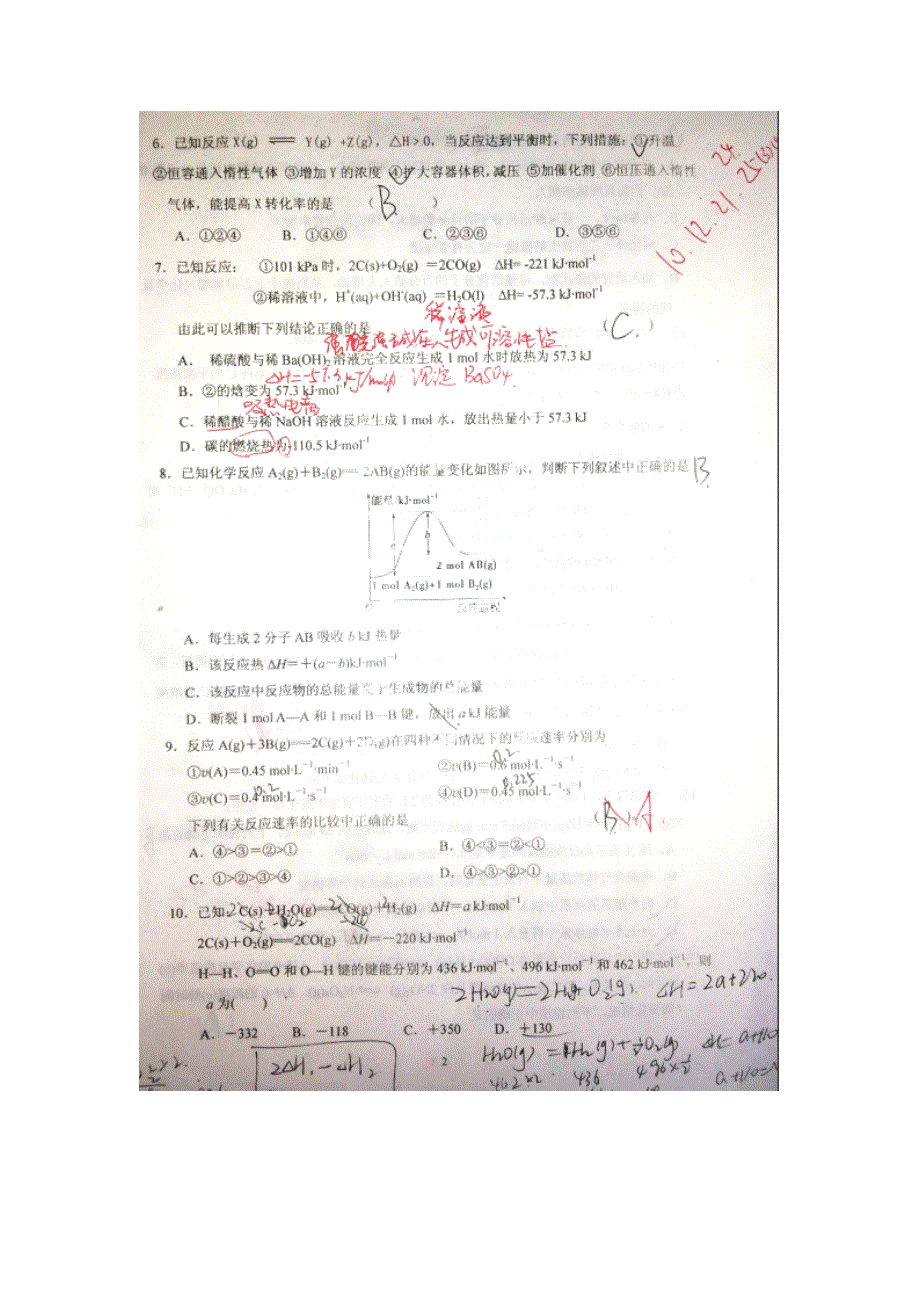 6. 已知反应 X(g) ⇌ Y(g) +Z(g), △H>0, 当反应达到平衡时, 下列措施: ①升温
②恒容通入惰性气体 ③增加 Y 的浓度 ④扩大容器体积,减压 ⑤加催化剂 ⑥恒压通入惰性
气体, 能提高 X 转化率的是 ( B )
A. ①②④ B. ①④⑥ C. ②③⑥ D. ③⑤⑥
24.
10. 12. 21.
7. 已知反应: ①101 kPa 时, 2C(s)+O₂(g) =2CO(g) ΔH= -221 kJ·mol⁻¹
②稀溶液中, H⁺(aq)+OH⁻(aq) =H₂O(l) ΔH= -57.3 kJ·mol⁻¹
稀溶液
由此可以推断下列结论正确的是 ( C. )
生成可溶性盐
A. 稀硫酸与稀 Ba(OH)₂ 溶液完全反应生成 1 mol 水时放热为 57.3 kJ
ΔH=-57.3 kJ/mol 沉淀 BaSO4.
B. ②的焓变为 57.3 kJ·mol⁻¹
吸热电离
C. 稀醋酸与稀 NaOH 溶液反应生成 1 mol 水, 放出热量小于 57.3 kJ
D. 碳的燃烧热为-110.5 kJ·mol⁻¹
8. 已知化学反应 A₂(g)+B₂(g)══2AB(g)的能量变化如图所示, 判断下列叙述中正确的是 B
能量/kJ·mol⁻¹
a
b
2 mol AB(g)
1 mol A₂(g)+1 mol B₂(g)
O 反应过程
A. 每生成 2 分子 AB 吸收 b kJ 热量
B. 该反应热 ΔH=+(a-b)kJ·mol⁻¹
C. 该反应中反应物的总能量高于生成物的总能量
D. 断裂 1 mol A—A 和 1 mol B—B 键, 放出 a kJ 能量
9. 反应 A(g)+3B(g)══2C(g)+2D(g)在四种不同情况下的反应速率分别为
0.2
①v(A)=0.45 mol·L⁻¹·min⁻¹ ②v(B)=0.6 mol·L⁻¹·s⁻¹
0.2 0.225
③v(C)=0.4 mol·L⁻¹·s⁻¹ ④v(D)=0.45 mol·L⁻¹·s⁻¹
下列有关反应速率的比较中正确的是 ( B ) A
A. ④>③=②>① B. ④<③=②<①
C. ①>②>③>④ D. ④>③>②>①
10. 已知: C(s)+H₂O(g)══CO(g)+H₂(g) ΔH=a kJ·mol⁻¹
2C(s)+O₂(g)══2CO(g) ΔH=-220 kJ·mol⁻¹
H—H、O═O 和 O—H 键的键能分别为 436 kJ·mol⁻¹、496 kJ·mol⁻¹ 和 462 kJ·mol⁻¹, 则
2H₂O(g)=2H₂(g)+O₂(g). ΔH=2a+220.
a 为( )
A. -332 B. -118 C. +350 D. +130
H₂O(g)=H₂(g)+½O₂(g) ΔH=a+110
2ΔH₁-ΔH₂
2
462×2 436 496×½